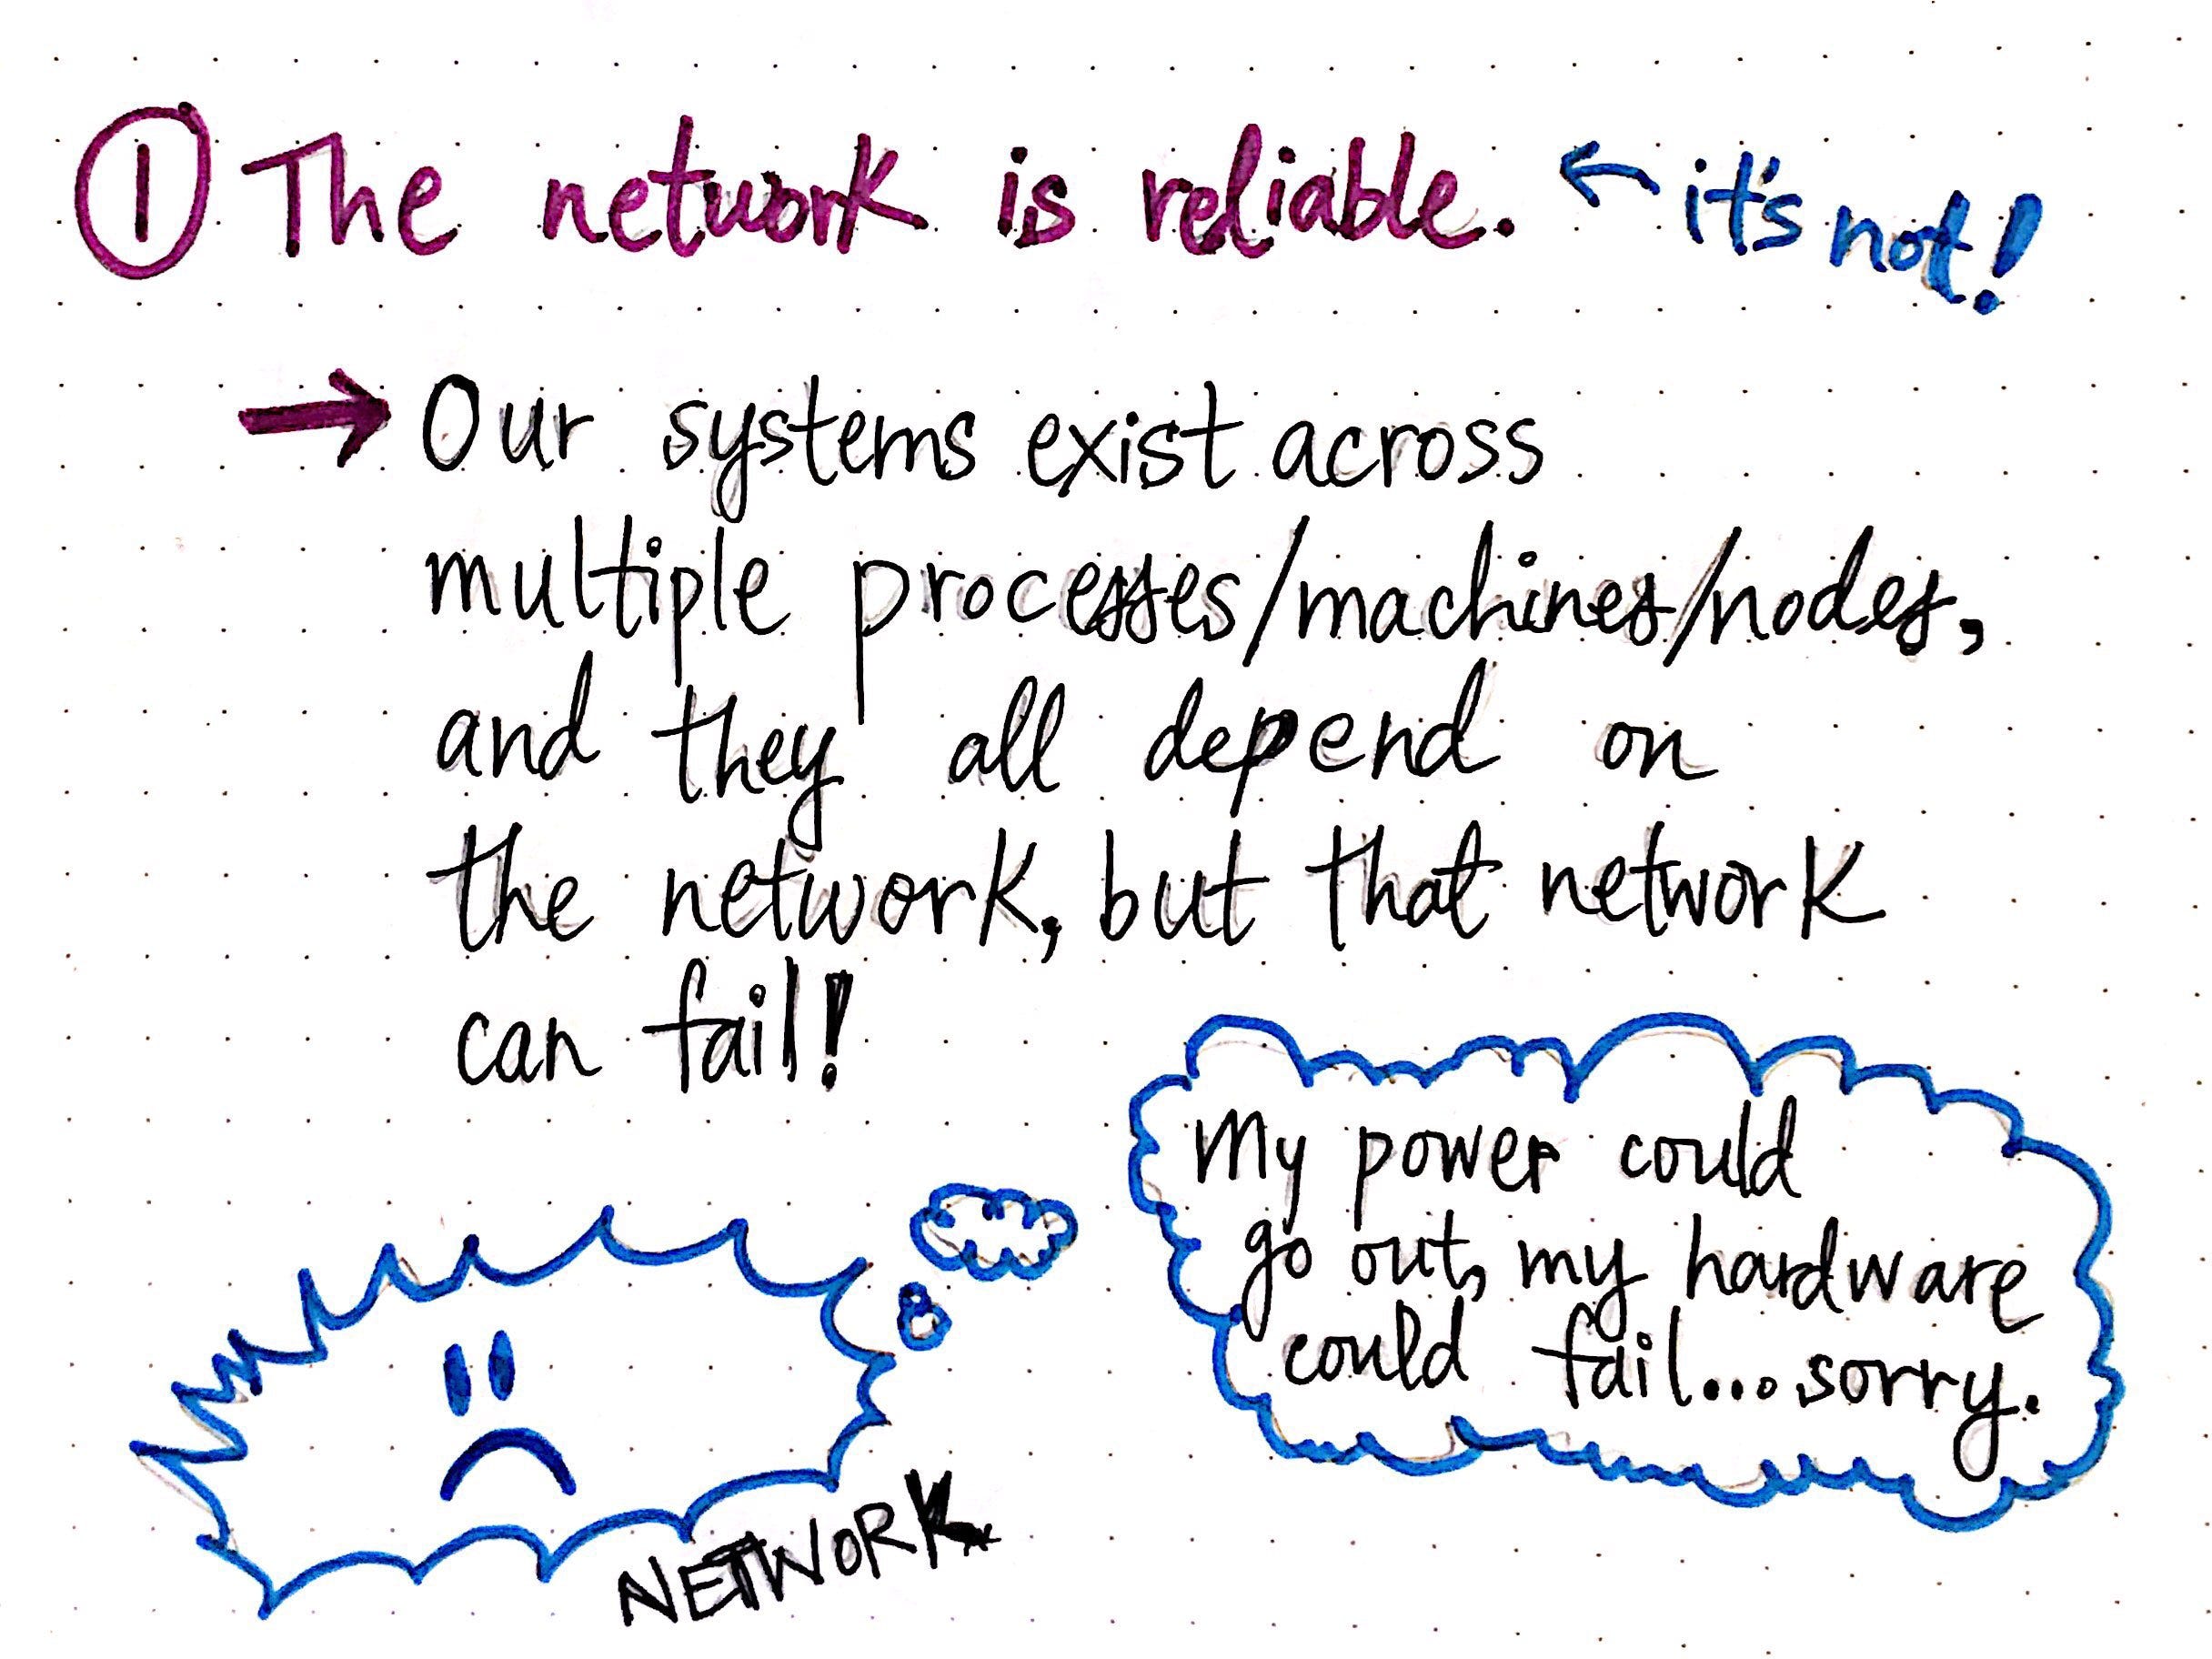 ① The network is reliable. ← it's not!
→ Our systems exist across
multiple processes/machines/nodes,
and they all depend on
the network, but that network
can fail!
My power could
go out, my hardware
could fail...sorry.
NETWORK